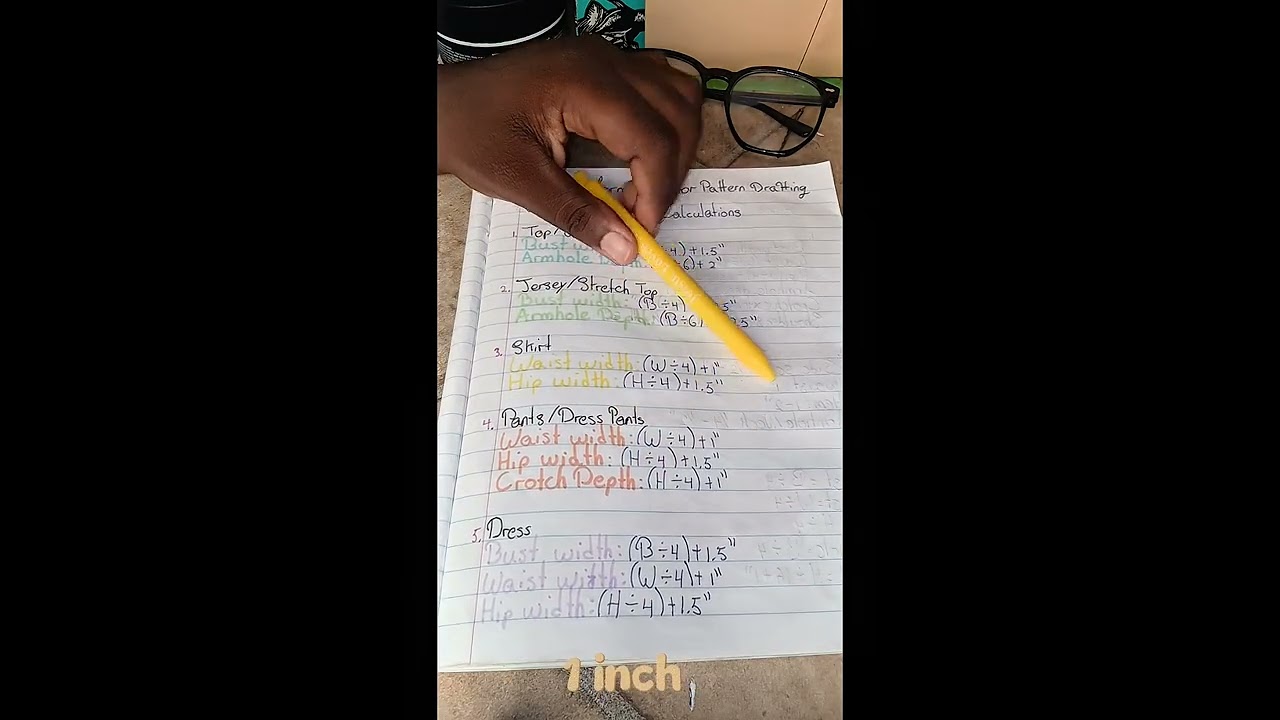 or Pattern Drafting
Calculations
1. Top/
Bust 4)+1.5"
Armhole Depth: 6)+2"
2. Jersey/Stretch Top
Bust width: (B÷4) 5"
Armhole Depth: (B÷6) .5"
3. Skirt
Waist width: (W÷4)+1"
Hip width: (H÷4)+1.5"
4. Pants/Dress Pants
Waist width: (W÷4)+1"
Hip width: (H÷4)+1.5"
Crotch Depth: (H÷4)+1"
5. Dress
Bust width: (B÷4)+1.5"
Waist width: (W÷4)+1"
Hip width: (H÷4)+1.5"
1 inch